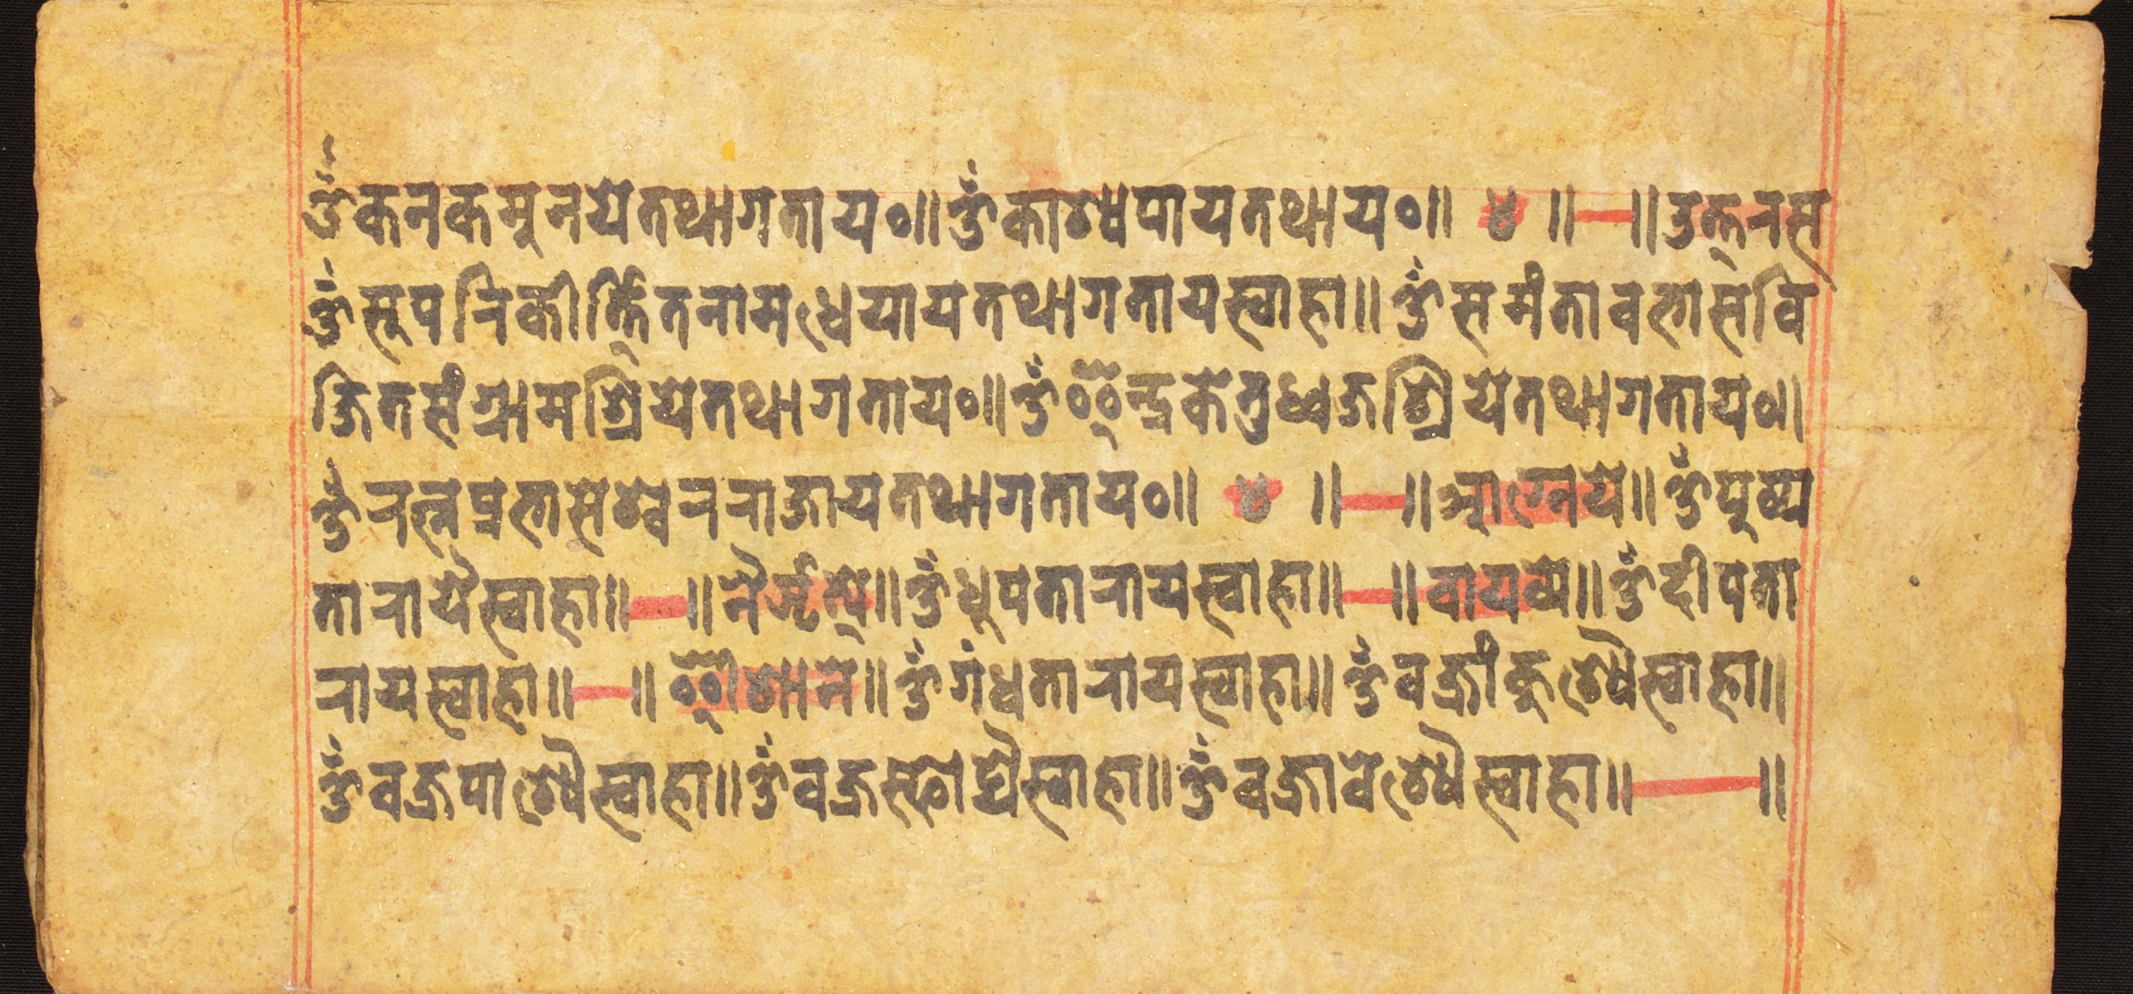 ॐ कनकमुनये तथागताय०॥ ॐ काश्यपाय तथाय०॥ ४ ॥—॥ उत्तनस
ॐ सुपनिकीर्त्तितनामधेयाय तथागताय स्वाहा॥ ॐ समंतावभासवि
जितसंग्रामश्रिये तथागताय०॥ ॐ इन्द्रकेतुध्वजश्रिये तथागताय०॥
ॐ नत्नप्रभासेश्वेनराजाय तथागताय०॥ ४ ॥—॥ आग्नेये॥ ॐ पुष्प
तारायै स्वाहा॥—॥ नैर्ऋत्ये॥ ॐ धूपताराय स्वाहा॥—॥ वायव्ये॥ ॐ दीपता
राय स्वाहा॥—॥ ईशाने॥ ॐ गंधताराय स्वाहा॥ ॐ वज्रांकुश्यै स्वाहा॥
ॐ वज्रपाश्यै स्वाहा॥ ॐ वज्रस्फोट्यै स्वाहा॥ ॐ वज्रावेश्यै स्वाहा॥—॥